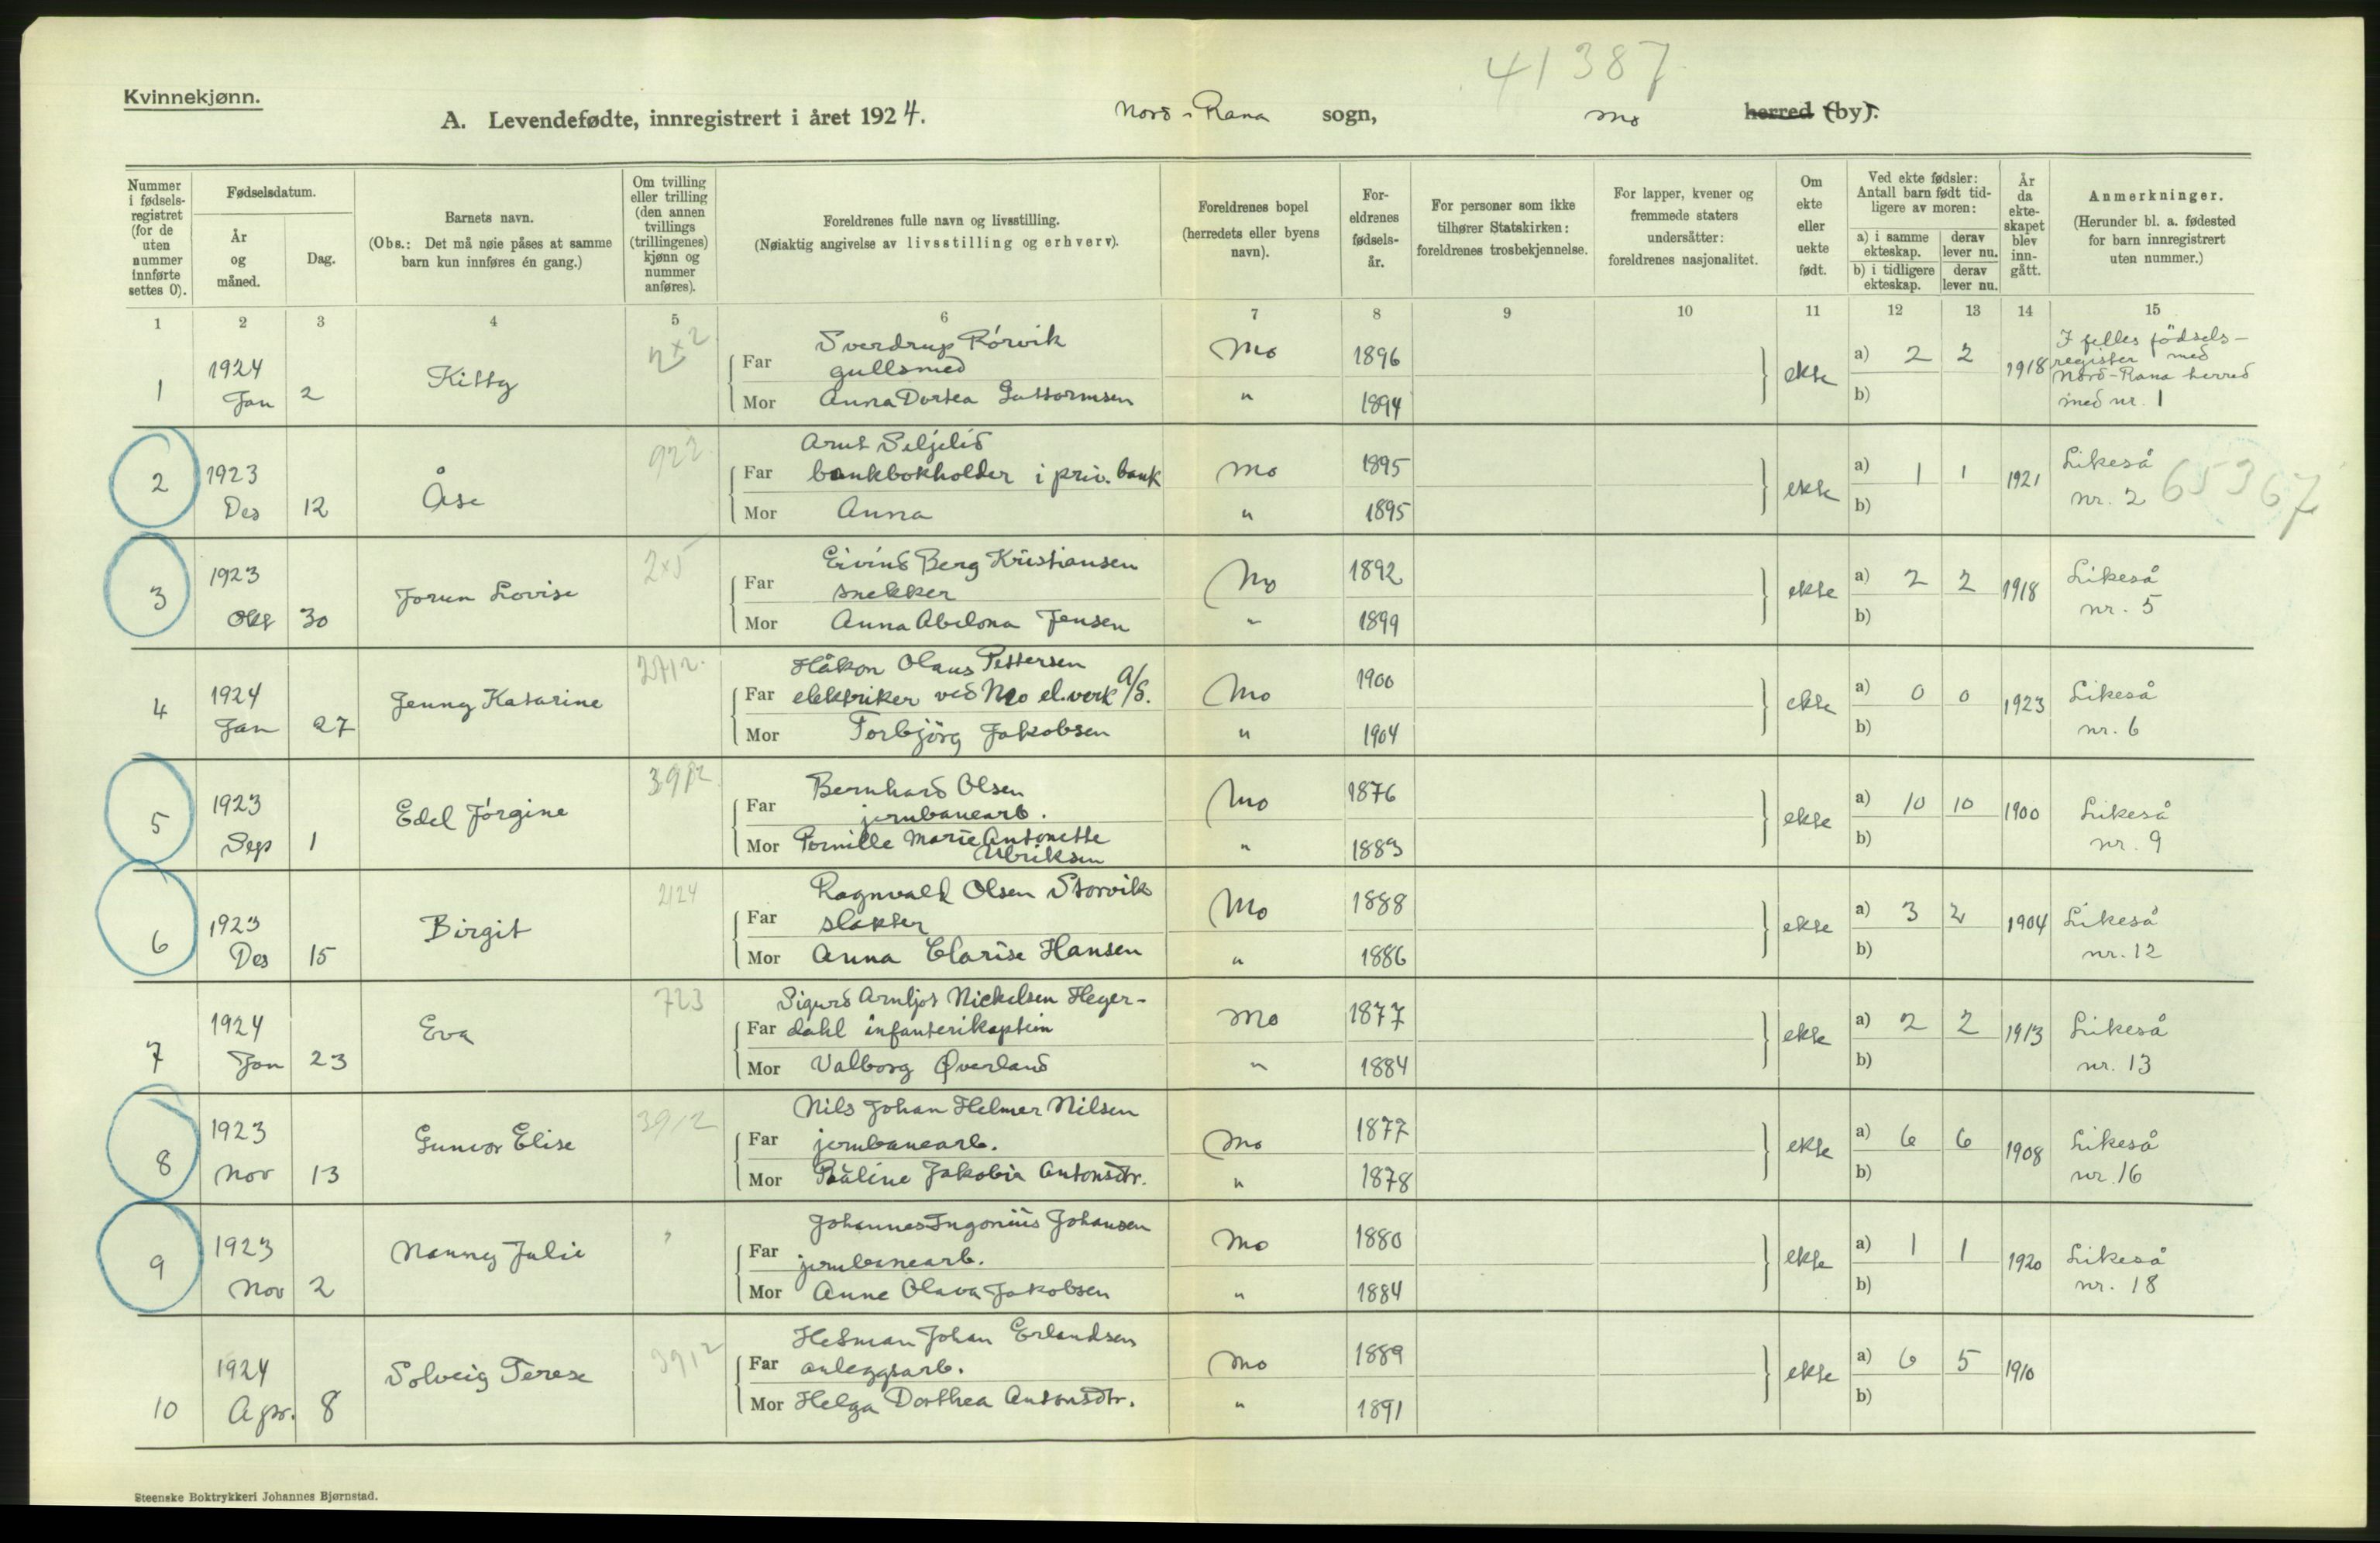 41387
Kvinnekjønn.
A. Levendefødte, innregistrert i året 1924. Nord-Rana sogn, Mo herred (by).
Nummer i fødsels-registret (for de uten nummer innførte settes 0).
Fødselsdatum.
År og måned.
Dag.
Barnets navn.
(Obs.: Det må nøie påses at samme barn kun innføres én gang.)
Om tvilling eller trilling (den annen tvillings (trillingenes) kjønn og nummer anføres).
Foreldrenes fulle navn og livsstilling.
(Nøiaktig angivelse av livsstilling og erhverv).
Foreldrenes bopel (herredets eller byens navn).
For-eldrenes fødsels-år.
For personer som ikke tilhører Statskirken: foreldrenes trosbekjennelse.
For lapper, kvener og fremmede staters undersåtter: foreldrenes nasjonalitet.
Om ekte eller uekte født.
Ved ekte fødsler: Antall barn født tid-ligere av moren:
a) i samme ekteskap. derav lever nu.
b) i tidligere ekteskap. derav lever nu.
År da ekte-skapet blev inn-gått.
Anmerkninger.
(Herunder bl. a. fødested for barn innregistrert uten nummer.)
1 2 3 4 5 6 7 8 9 10 11 12 13 14 15
1 1924 Jan 2 Kitty
Far Sverdrup Rörvik
gullsmed Mo 1896
Mor Anna Dortea Guttormsen " 1894
ekte a) 2 2 b) 1918
I felles födsels-
register med
Nord-Rana herred
med nr. 1
2 1923 Des 12 Åse 922
Far Arnt Seljelid
bankbokholder i priv. bank Mo 1895
Mor Anna " 1895
ekte a) 1 1 b) 1921
Likeså
nr. 2 65367
3 1923 Okt 30 Jorun Lovise 2x5
Far Eivind Berg Kristiansen
snekker Mo 1892
Mor Anna Abelona Jensen " 1899
ekte a) 2 2 b) 1918
Likeså
nr. 5
4 1924 Jan 27 Jenny Katarine
Far Håkon Olaus Pettersen
elektriker ved Mo el.verk A/S. Mo 1900
Mor Torbjörg Jakobsen " 1904
ekte a) 0 0 b) 1923
Likeså
nr. 6
5 1923 Sep 1 Edel Jörgine 3912
Far Bernhard Olsen
jernbanearb. Mo 1876
Mor Pernille Marie Antonette
Ulriksen " 1883
ekte a) 10 10 b) 1900
Likeså
nr. 9
6 1923 Des 15 Birgit 2124
Far Ragnvald Olsen Storvik
slakter Mo 1888
Mor Anna Clarise Hansen " 1886
ekte a) 3 2 b) 1904
Likeså
nr. 12
7 1924 Jan 23 Eva 723
Far Sigurd Arntljot Nickelsen Heyer-
dahl infanterikaptein Mo 1877
Mor Valborg Øverland " 1884
ekte a) 2 2 b) 1913
Likeså
nr. 13
8 1923 Nov 13 Gunvor Elise 3912
Far Nils Johan Helmer Nilsen
jernbanearb. Mo 1877
Mor Pauline Jakobia Antonsdtr. " 1878
ekte a) 6 6 b) 1908
Likeså
nr. 16
9 1923 Nov 2 Nanny Julie "
Far Johannes Ingonius Johansen
jernbanearb. Mo 1880
Mor Anne Olava Jakobsen " 1884
ekte a) 1 1 b) 1920
Likeså
nr. 18
10 1924 Apr. 8 Solveig Terese 3912
Far Hetman Johan Erlandsen
anleggsarb. Mo 1889
Mor Helga Dorthea Antonsdtr. " 1891
ekte a) 6 5 b) 1910
Steenske Boktrykkeri Johannes Bjørnstad.